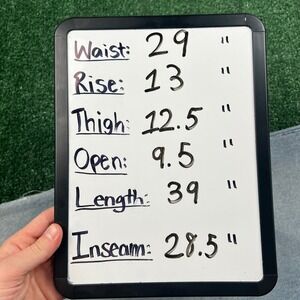 Waist: 29 "
Rise: 13 "
Thigh: 12.5 "
Open: 9.5 "
Length: 39 "
Inseam: 28.5 "